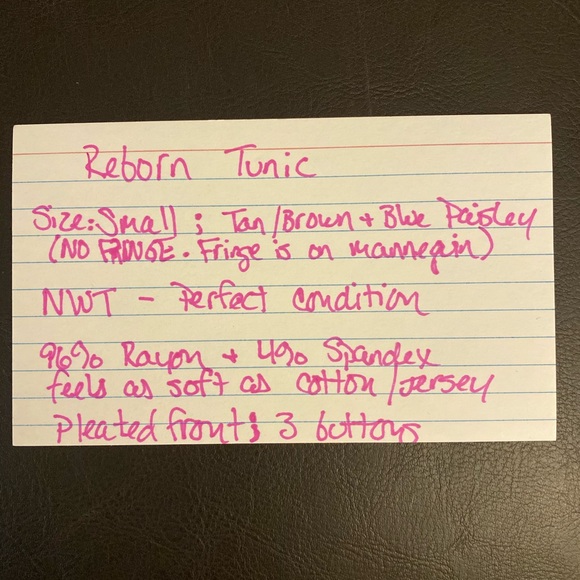 Reborn Tunic
Size: Small ; Tan/Brown + Blue Paisley
(NO FRINGE. Fringe is on mannequin)
NWT - Perfect condition
96% Rayon + 4% Spandex
feels as soft as cotton/jersey
Pleated front; 3 buttons